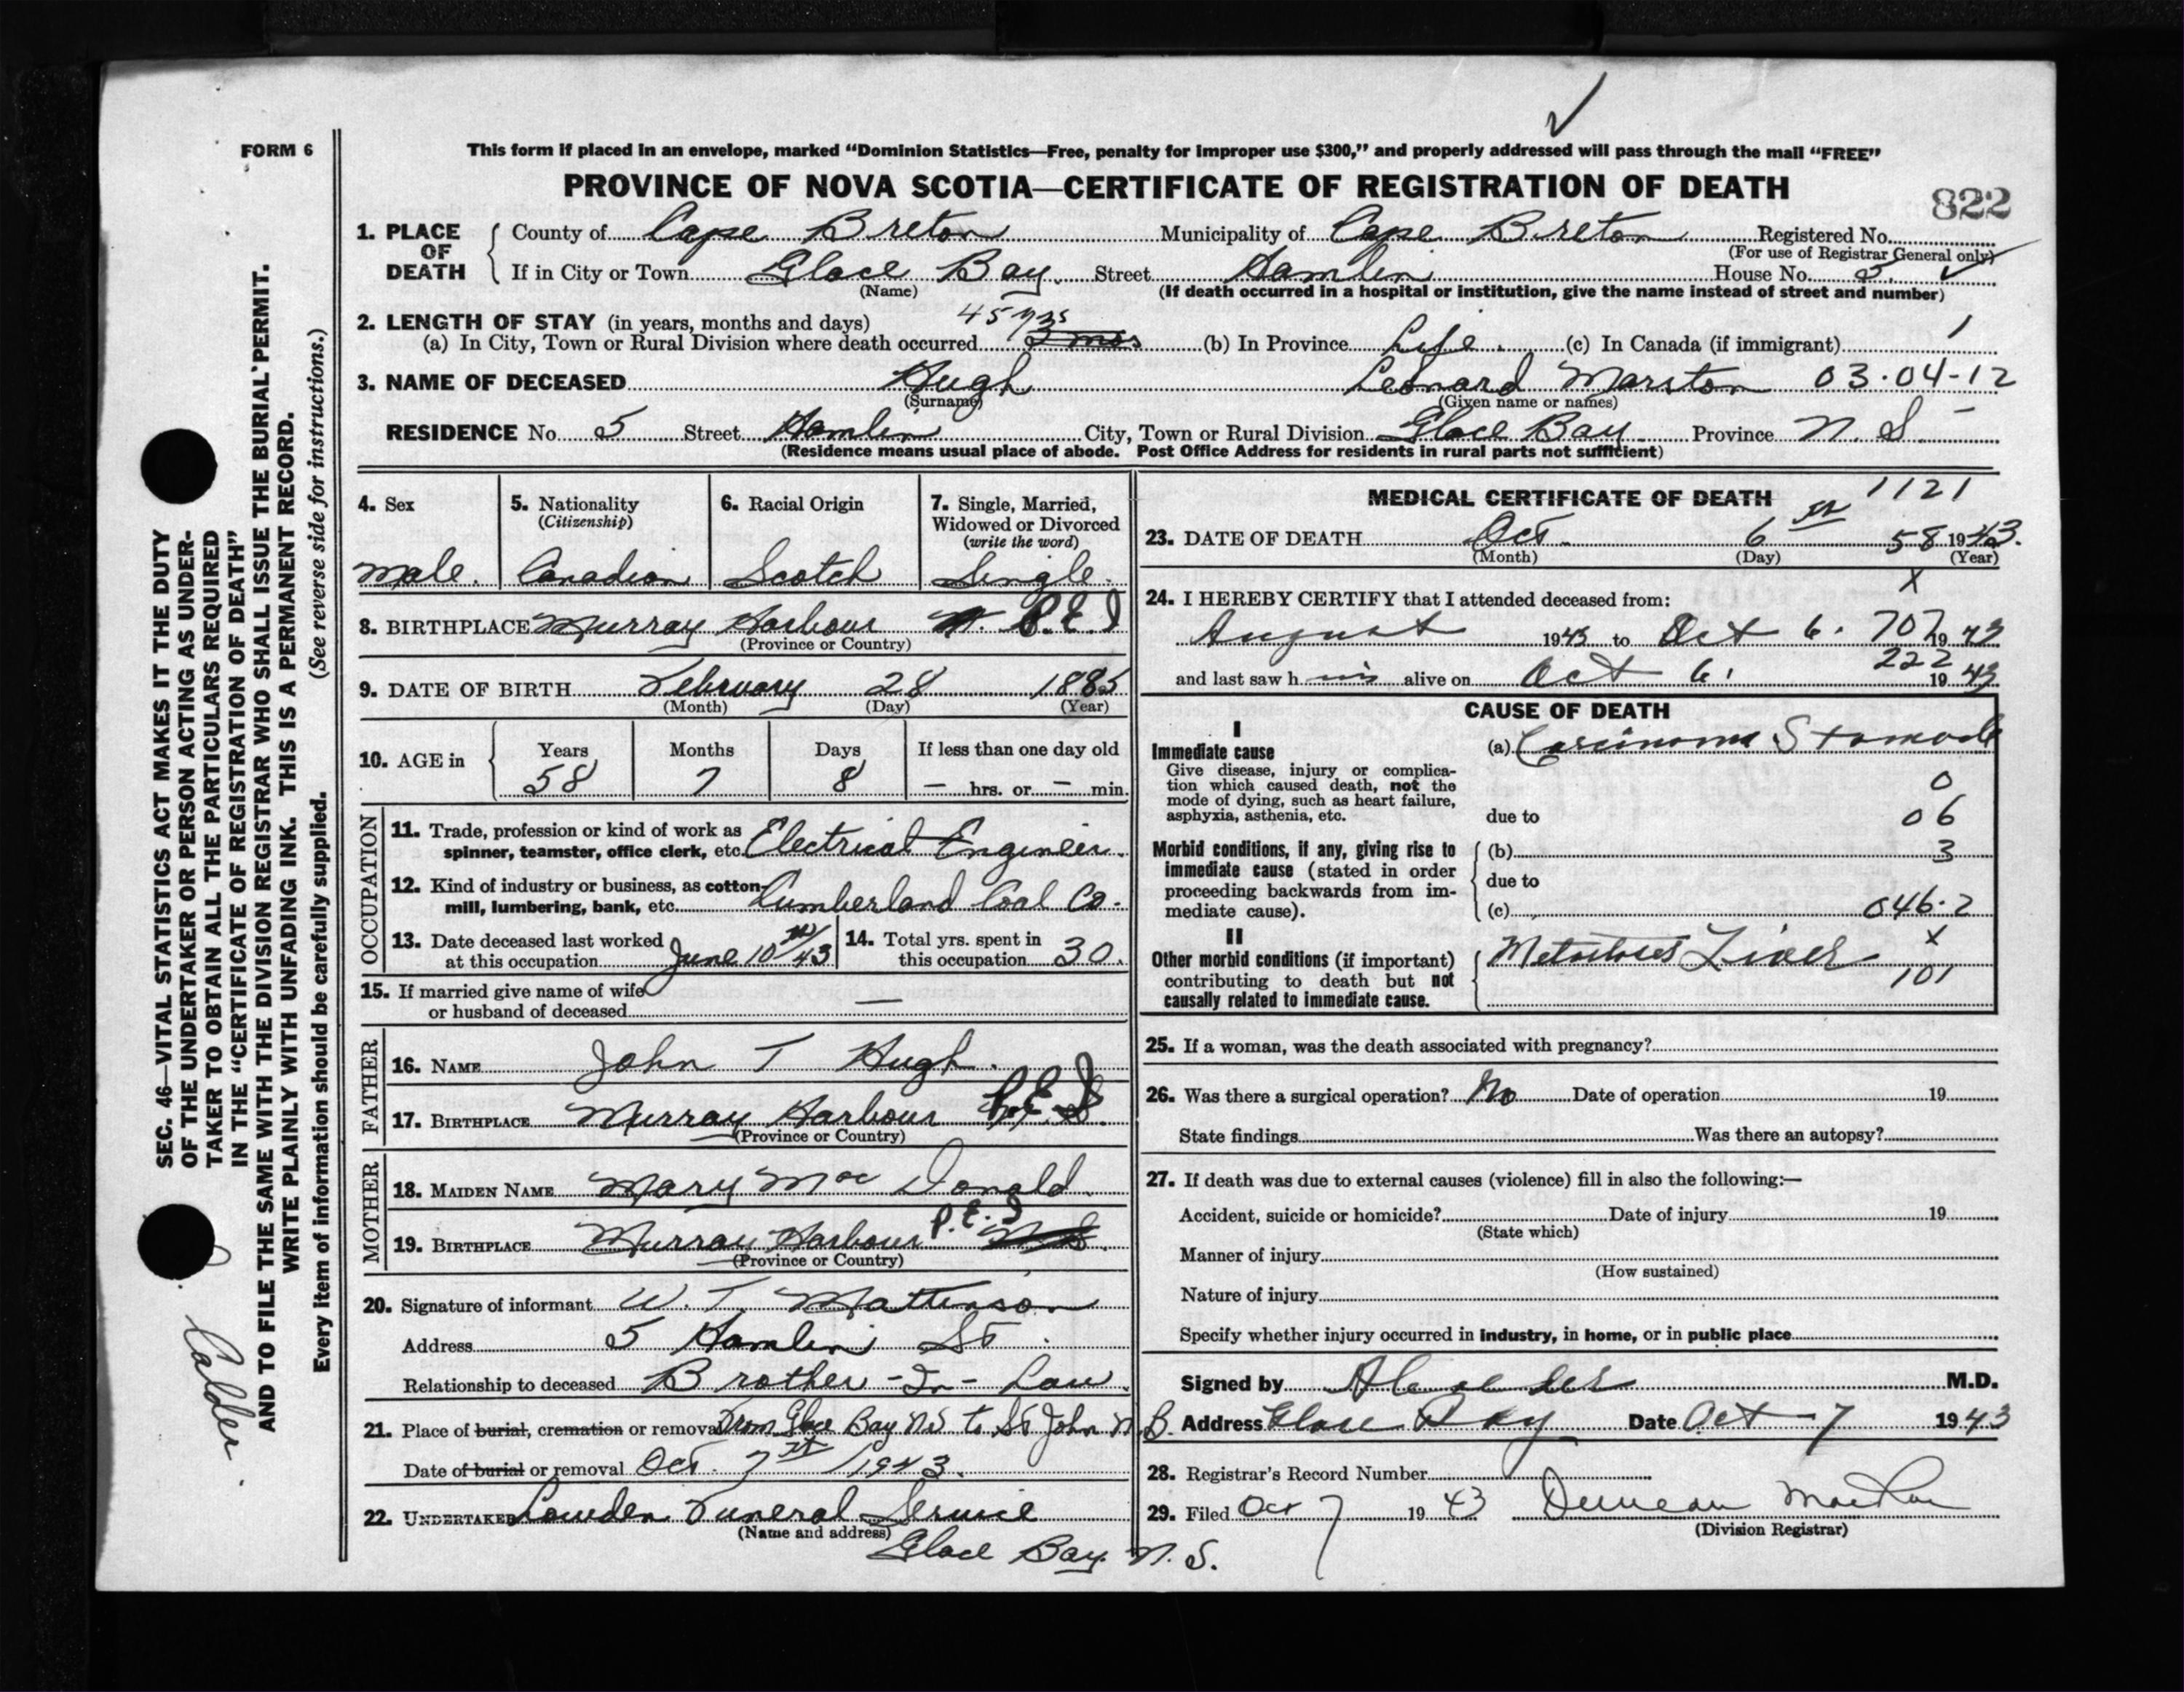 FORM 6
This form if placed in an envelope, marked “Dominion Statistics—Free, penalty for improper use $300,” and properly addressed will pass through the mail “FREE”
PROVINCE OF NOVA SCOTIA—CERTIFICATE OF REGISTRATION OF DEATH
822
1. PLACE OF DEATH
County of Cape Breton Municipality of Cape Breton Registered No.
(For use of Registrar General only)
If in City or Town Glace Bay. Street Hamlin House No. 5.
(Name) (If death occurred in a hospital or institution, give the name instead of street and number)
2. LENGTH OF STAY (in years, months and days) 45 yrs
(a) In City, Town or Rural Division where death occurred 2 mos (b) In Province Life. (c) In Canada (if immigrant)
3. NAME OF DECEASED Hugh Leonard Marston 03·04-12
(Surname) (Given name or names)
RESIDENCE No. 5 Street Hamlin City, Town or Rural Division Glace Bay Province N. S.
(Residence means usual place of abode. Post Office Address for residents in rural parts not sufficient)
4. Sex
Male.
5. Nationality
(Citizenship)
Canadian
6. Racial Origin
Scotch
7. Single, Married, Widowed or Divorced
(write the word)
Single.
8. BIRTHPLACE Murray Harbour P.E.I
(Province or Country)
9. DATE OF BIRTH February 28 1885
(Month) (Day) (Year)
10. AGE in
Years Months Days If less than one day old
58 7 8 — hrs. or — min.
OCCUPATION
11. Trade, profession or kind of work as
spinner, teamster, office clerk, etc. Electrical Engineer.
12. Kind of industry or business, as cotton-
mill, lumbering, bank, etc. Cumberland Coal Co.
13. Date deceased last worked
at this occupation June 10th/43
14. Total yrs. spent in
this occupation 30.
15. If married give name of wife
or husband of deceased —
FATHER
16. NAME John T Hugh.
17. BIRTHPLACE Murray Harbour P.E.I
(Province or Country)
MOTHER
18. MAIDEN NAME Mary Mac Donald.
19. BIRTHPLACE Murray Harbour P.E.I N.S.
(Province or Country)
20. Signature of informant W. T. Mattinson
Address 5 Hamlin St.
Relationship to deceased Brother-In-Law.
21. Place of burial, cremation or removal From Glace Bay N.S to St John N.B.
Date of burial or removal Oct. 7th 1943.
22. UNDERTAKER Lowden Funeral Service
(Name and address)
Glace Bay. N. S.
MEDICAL CERTIFICATE OF DEATH 1121
23. DATE OF DEATH Oct. 6th 58 1943.
(Month) (Day) (Year)
X
24. I HEREBY CERTIFY that I attended deceased from:
August 1943 to Oct 6. 707 1943
222
and last saw h im alive on Oct 6. 1943
CAUSE OF DEATH
I
Immediate cause
Give disease, injury or complica-
tion which caused death, not the
mode of dying, such as heart failure,
asphyxia, asthenia, etc.
(a) Carcinoma Stomach
0
due to 06
Morbid conditions, if any, giving rise to
immediate cause (stated in order
proceeding backwards from im-
mediate cause).
(b) 3
due to
(c) 046·2
II
X
Other morbid conditions (if important)
contributing to death but not
causally related to immediate cause.
Metastases Liver
101
25. If a woman, was the death associated with pregnancy?
26. Was there a surgical operation? No Date of operation 19
State findings Was there an autopsy?
27. If death was due to external causes (violence) fill in also the following:—
Accident, suicide or homicide? Date of injury 19
(State which)
Manner of injury
(How sustained)
Nature of injury
Specify whether injury occurred in industry, in home, or in public place
Signed by M.D.
Address Glace Bay Date Oct 7 1943
28. Registrar's Record Number
29. Filed Oct 7 1943 Duncan
(Division Registrar)
SEC. 46—VITAL STATISTICS ACT MAKES IT THE DUTY
OF THE UNDERTAKER OR PERSON ACTING AS UNDER-
TAKER TO OBTAIN ALL THE PARTICULARS REQUIRED
IN THE “CERTIFICATE OF REGISTRATION OF DEATH”
AND TO FILE THE SAME WITH THE DIVISION REGISTRAR WHO SHALL ISSUE THE BURIAL PERMIT.
WRITE PLAINLY WITH UNFADING INK. THIS IS A PERMANENT RECORD.
Every item of information should be carefully supplied. (See reverse side for instructions.)
Calder.